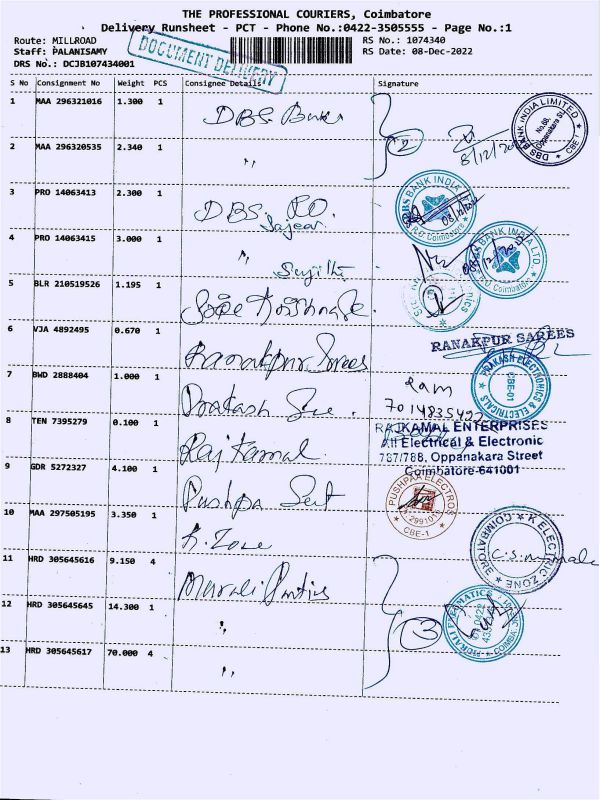 THE PROFESSIONAL COURIERS, Coimbatore
Delivery Runsheet - PCT - Phone No.:0422-3505555 - Page No.:1
Route: MILLROAD
Staff: PALANISAMY
DRS No.: DCJB107434001
DOCUMENT DELIVERY
RS No.: 1074340
RS Date: 08-Dec-2022
S No Consignment No Weight PCS Consignee Details Signature
1 MAA 296321016 1.300 1 DBS Bank
2
8/12/
DBS BANK INDIA LIMITED
No.68, Oppanakara St.
CBE-1
2 MAA 296320535 2.340 1 "
3 PRO 14063413 2.300 1 DBS RO
DBS BANK INDIA
R.O Coimbatore
4 PRO 14063415 3.000 1 "
BANK INDIA LTD.
R.O Coimbatore
5 BLR 210519526 1.195 1
6 VJA 4892495 0.670 1 Ranakpur Sarees
RANAKPUR SAREES
7 BWD 2888404 1.000 1 Prakash
Ram
7014835422
PRAKASH ELECTRONICS & ELECTRICALS
CBE-01
8 TEN 7395279 0.100 1 Rajkamal
RAJKAMAL ENTERPRISES
All Electrical & Electronic
787/788, Oppanakara Street
Coimbatore-641001
9 GDR 5272327 4.100 1 Pushpa
PUSHPAA ELECTROS
CBE-1
10 MAA 297505195 3.350 1 K. Zone
K ELECTRIC ZONE
COIMBATORE
11 HRD 305645616 9.150 4 Murali
3
12 HRD 305645645 14.300 1 "
13 HRD 305645617 70.000 4 "